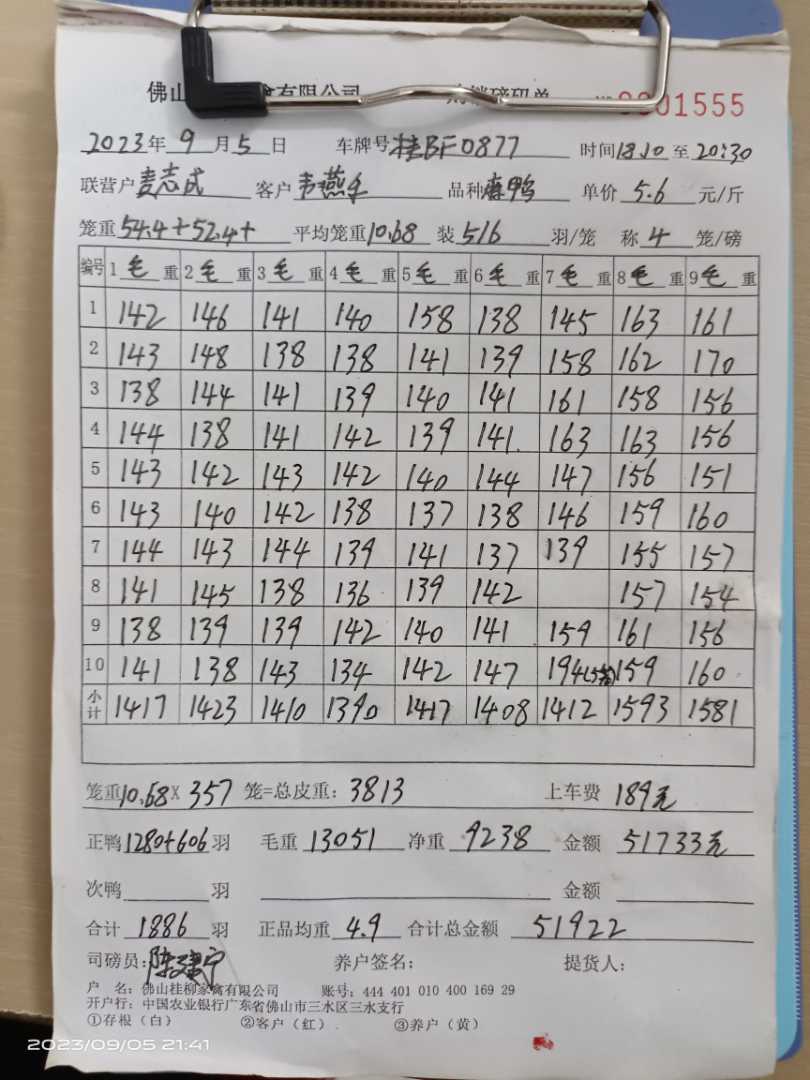 佛山 家禽有限公司 0001555
2023年9月5日 车牌号桂BF0877 时间18:10至20:30
联营户麦志成 客户韦燕 品种麻鸭 单价5.6元/斤
笼重54.4+52.4+ 平均笼重10.68 装5/6羽/笼 称4笼/磅
编号 1毛重 2毛重 3毛重 4毛重 5毛重 6毛重 7毛重 8毛重 9毛重
1 142 146 141 140 158 138 145 163 161
2 143 148 138 138 141 139 158 162 170
3 138 144 141 139 140 141 161 158 156
4 144 138 141 142 139 141. 163 163 156
5 143 142 143 142 140 144 147 156 151
6 143 140 142 138 137 138 146 159 160
7 144 143 144 139 141 137 139 155 157
8 141 145 138 136 139 142 157 154
9 138 139 139 142 140 141 159 161 156
10 141 138 143 134 142 147 194(5笼) 159 160
小计 1417 1423 1410 1390 1417 1408 1412 1593 1581
笼重10.68×357笼=总皮重:3813 上车费189元
正鸭1280+606羽 毛重13051 净重9238 金额51733元
次鸭 羽 金额
合计1886羽 正品均重4.9 合计总金额51922
司磅员:陈建宁 养户签名: 提货人:
户 名:佛山桂柳家禽有限公司 账号:444 401 010 400 169 29
开户行:中国农业银行广东省佛山市三水区三水支行
①存根(白) ②客户(红) ③养户(黄)
2023/09/05 21:41